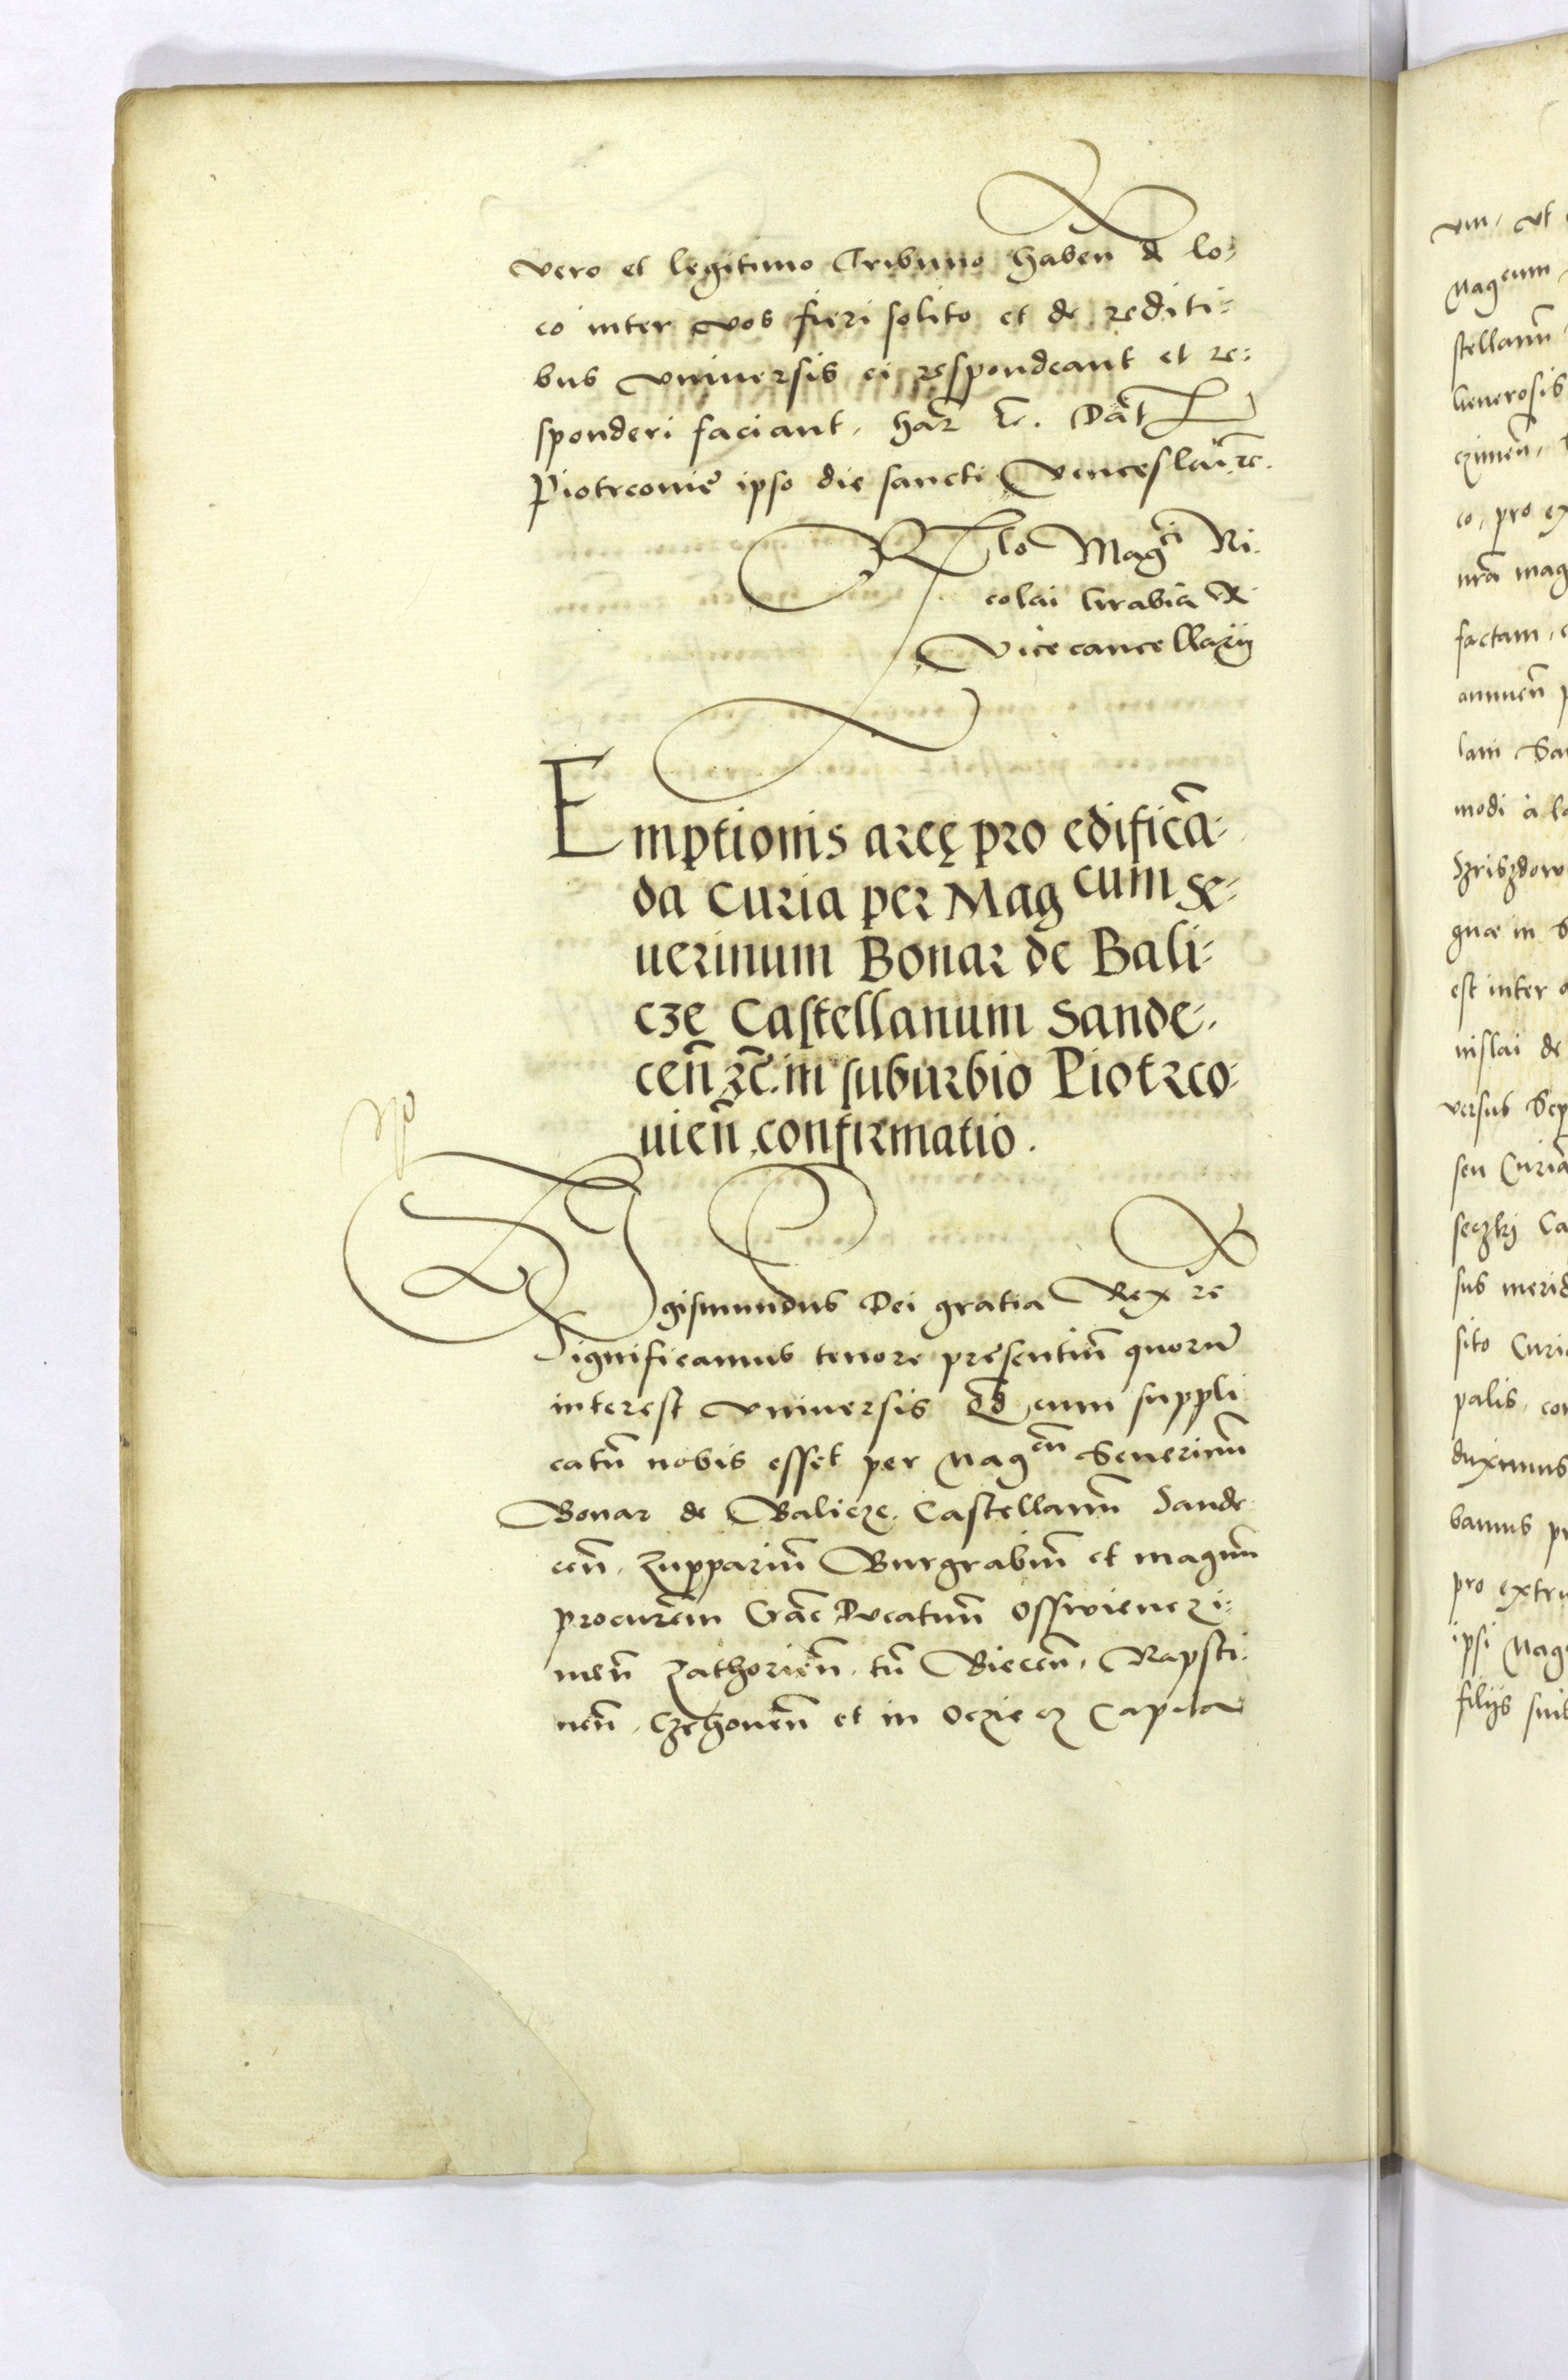 vero et legitimo Tribuno haben̄ d lo-
co inter vos fieri solito et de rediti-
bus vniuersis ei respondeant et re-
sponderi faciant. har̄ &c. Dat̄
Piotrcovię ipso die sancti Venceslai. &c.
Rlo Mag^ci Ni-
colai Grabia R
Vicecancellarij
Emptionis areę pro edificā-
da Curia per Mag^cum Se-
uerinum Bonar de Bali-
cze Castellanum Sande-
cen̄ &c. in suburbio Piotrco-
uien̄, confirmatio.
SIgismundus Dei gratia Rex &c
Significamus tenore presentiū quorū
interest vniuersis Qd cum suppli
catū nobis esset per Mag^cū Seuerinū
Bonar de Balicze. Castellanū Sande
cen̄. Zuppariū Burgrabiū et magnū
procur̄em Crac̄ Ducatuū Osswienczi-
men̄ Zathorien̄. tū Biecen̄. Rapsti-
nen̄. Czchouen̄ et in Ocziecz Capita
vm. vt
Mag^cum
stellanū
Generosis
czimen̄.
co. pro ex
nrā mag
factam.
annuen̄ p
lam Sa
modi a la
est inter
nislai de
versus Sep
seu Curia
seczkj Ca
sus merid
sito Curi
palis. co
duximus
bamus p
pro extru
ipsi Mag
filijs sui